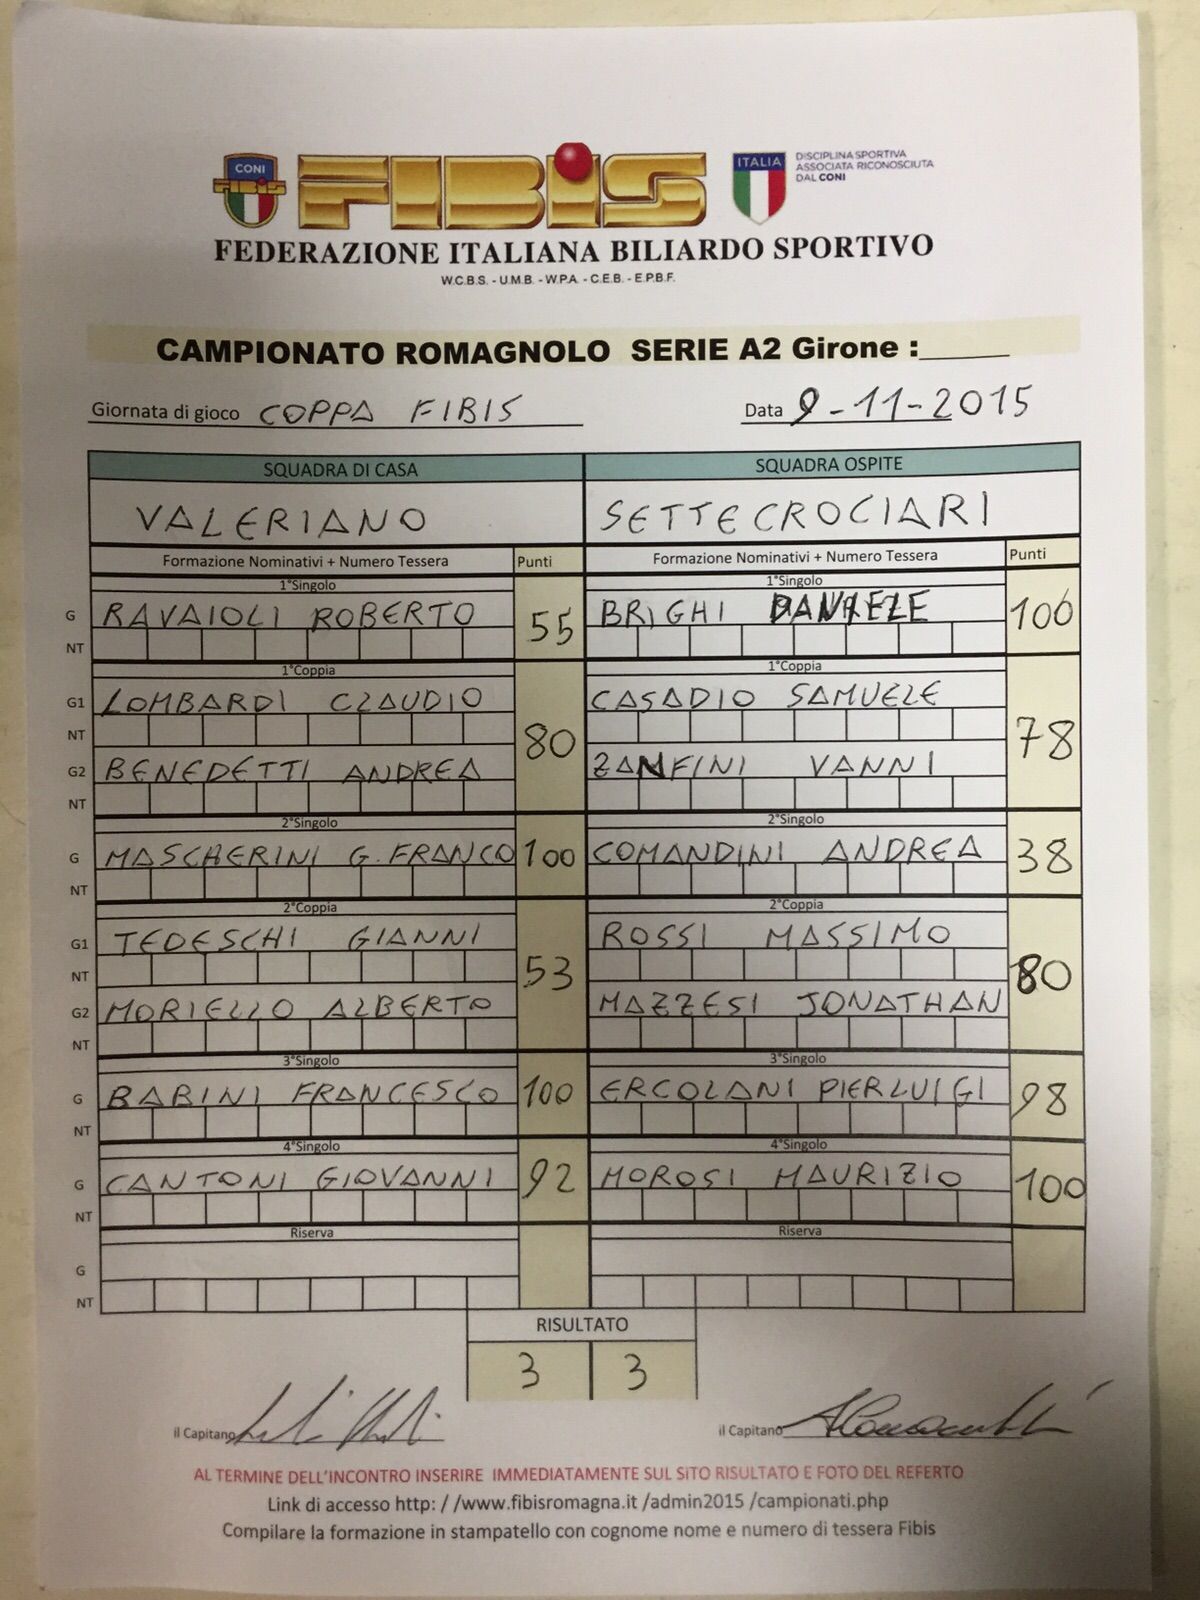 CONI
FIBIS
FIBiS
ITALIA
DISCIPLINA SPORTIVA
ASSOCIATA RICONOSCIUTA
DAL CONI
FEDERAZIONE ITALIANA BILIARDO SPORTIVO
W.C.B.S. - U.M.B. - W.P.A. - C.E.B. - E.P.B.F.
CAMPIONATO ROMAGNOLO SERIE A2 Girone :
Giornata di gioco COPPA FIBIS Data 9-11-2015
SQUADRA DI CASA SQUADRA OSPITE
VALERIANO SETTECROCIARI
Formazione Nominativi + Numero Tessera Punti Formazione Nominativi + Numero Tessera Punti
1°Singolo 1°Singolo
G RAVAIOLI ROBERTO 55 BRIGHI DANIELE 100
NT
1°Coppia 1°Coppia
G1 LOMBARDI CLAUDIO CASADIO SAMUELE
NT 80 78
G2 BENEDETTI ANDREA ZANFINI VANNI
NT
2°Singolo 2°Singolo
G MASCHERINI G.FRANCO 100 COMANDINI ANDREA 38
NT
2°Coppia 2°Coppia
G1 TEDESCHI GIANNI ROSSI MASSIMO
NT 53 80
G2 MORIELLO ALBERTO MAZZESI JONATHAN
NT
3°Singolo 3°Singolo
G BABINI FRANCESCO 100 ERCOLANI PIERLUIGI 98
NT
4°Singolo 4°Singolo
G CANTONI GIOVANNI 92 MOROSI MAURIZIO 100
NT
Riserva Riserva
G
NT
RISULTATO
3 3
il Capitano il Capitano
AL TERMINE DELL'INCONTRO INSERIRE IMMEDIATAMENTE SUL SITO RISULTATO E FOTO DEL REFERTO
Link di accesso http: / /www.fibisromagna.it /admin2015 /campionati.php
Compilare la formazione in stampatello con cognome nome e numero di tessera Fibis